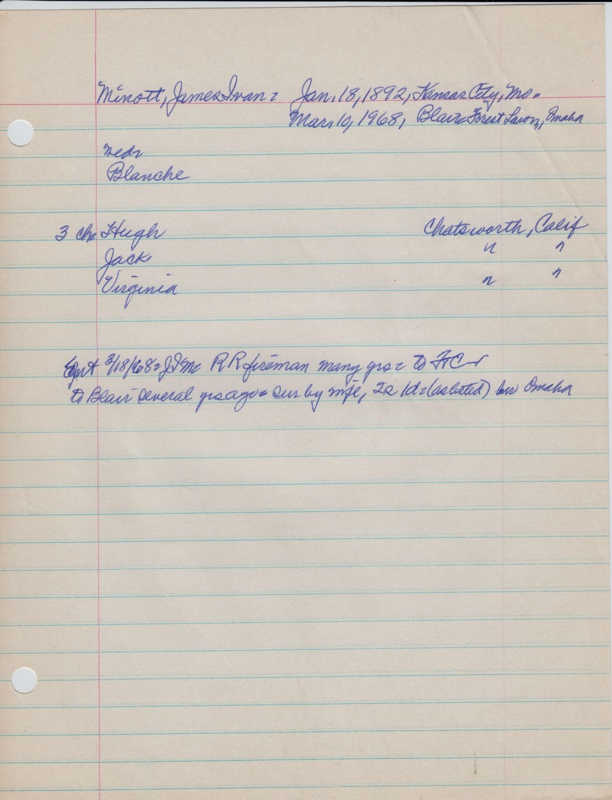 Minott, James Ivan: Jan. 18, 1892, Kansas City, Mo.
Mar. 10, 1968, Blair: Forest Lawn, Omaha
Blanche
3 ch: Hugh Chatsworth, Calif
Jack " "
Virginia " "
3/18/68: RR fireman many yrs: to
to Blair several yrs ago: sur by wife, (as listed) bur Omaha